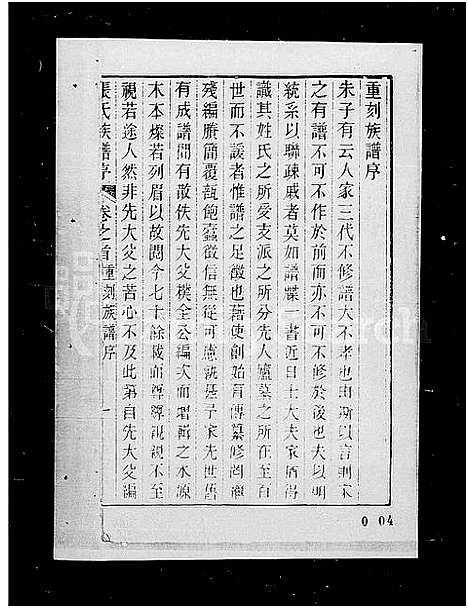 重刻族譜序
朱子有云人家三代不修譜大不孝也由斯以言則宗
之有譜不可不作於前而亦不可不修於後也夫以明
統系以聯疎戚者莫如譜牒一書近日士大夫家酒得
識其姓氏之所受支派之所分先人廬墓之所在至百
世而不諼者惟譜之足徵也藉使創始有傳纂修罔繼
殘編賸簡覆瓿飽蠹徵信無從可慮孰甚予家先世舊
有成譜間有散佚先大父樸全公編次而增輯之水源
木本燦若列眉以故閱今七十餘歲而尊尊親親不至
視若途人然非先大父之苦心不及此第自先大父編
張氏族譜序 卷之首 重刻族譜序
0 04